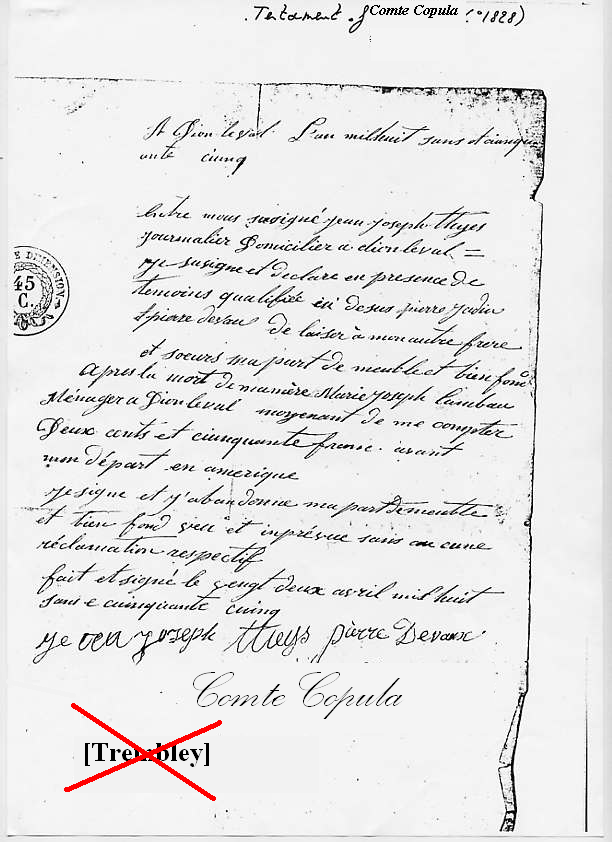 Testament Comte Copula (° 1828)
A Dion le val L'an mil huit sans et cianqu
ante cinq
Entre nous susigné Jean Joseph Thyes
journalier Domicilier a dion le val =
je susigne et declare en presence de
temoins qualifié en desus pierre
pierre devau de laiser à mon autre frere
et soeurs ma part de meuble et bien fond
Apres la mort de ma mère Marie Joseph Lambau
Ménager a Dion le val moyenant de me compter
Deux cents et cianquante franc avant
mon départ en amerique
je signe et j'abandonne ma part de meuble
et bien fond veu et inprévue sans aucune
réclamation respectif
fait et signé le vengt deux avril mil huit
sans e cuinquante cuinq
DIMENSION
45
C.
Joseph Pierre Devaux
Comte Copula
[Trembley]